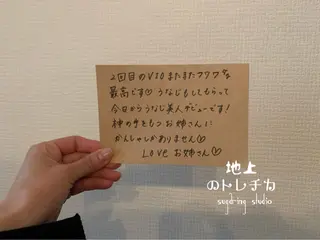 2回目のVIOまたまたフワフワで
最高です♡うなじもしてもらって
今日からうなじ美人デビューです!
神の手をもつお姉さんに
かんしゃしかありません♡
LOVE お姉さん♡
地上
のトレチカ
sugd-ing studio